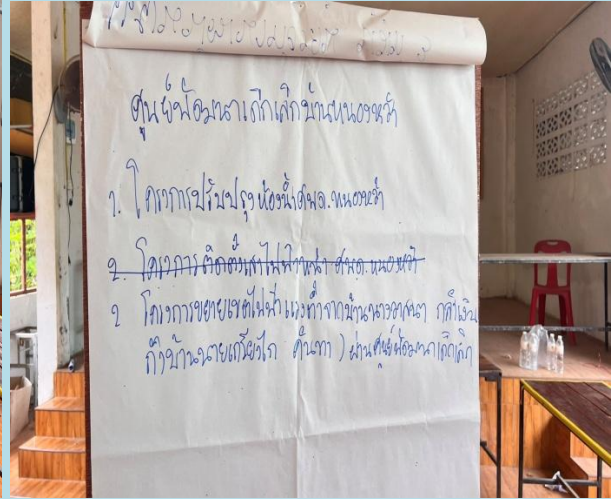 ศูนย์พัฒนาเด็กเล็กบ้านหนองหว้า
1. โครงการปรับปรุงห้องน้ำศพด.หนองหว้า
2. โครงการติดตั้งเสาไฟฟ้าหน้า ศพด.หนองหว้า
2 โครงการขยายเขตไฟฟ้าแรงต่ำจากบ้านนางวาสนา กล้าเงิน
ถึงบ้านนายเกรียงไกร คันทา) ผ่านศูนย์พัฒนาเด็กเล็ก